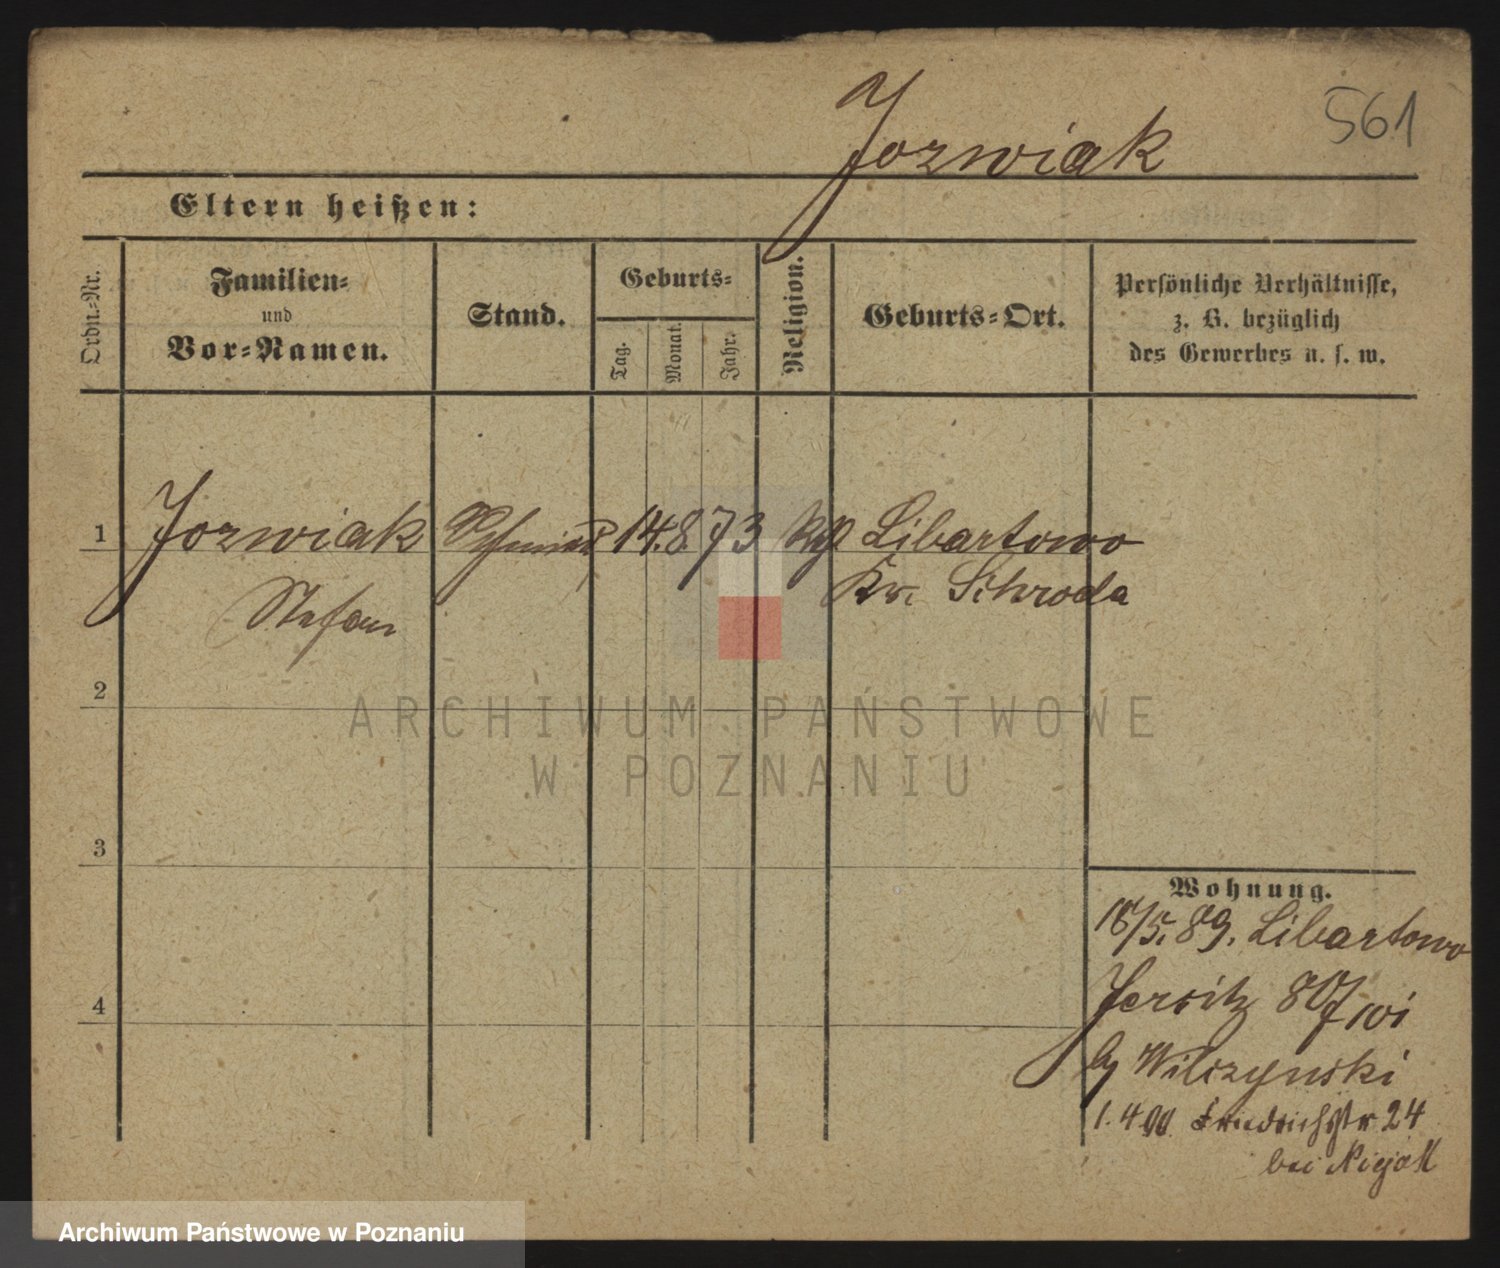 561
Jozwiak
Eltern heißen:
Ordn.-Nr.
Familien-
und
Vor-Namen.
Stand.
Geburts-
Tag.
Monat.
Jahr.
Religion.
Geburts-Ort.
Persönliche Verhältnisse,
z. B. bezüglich
des Gewerbes u. s. w.
1 Jozwiak Schmied 14. 8. 73 Libartowo
Stefan Kr. Schroda
2
3
4
ARCHIWUM PAŃSTWOWE
W POZNANIU
Wohnung.
18/5. 89. Libartowo
Jersitz 80/
Wilczynski
1. 4. 90. Friedrichstr 24
bei
Archiwum Państwowe w Poznaniu